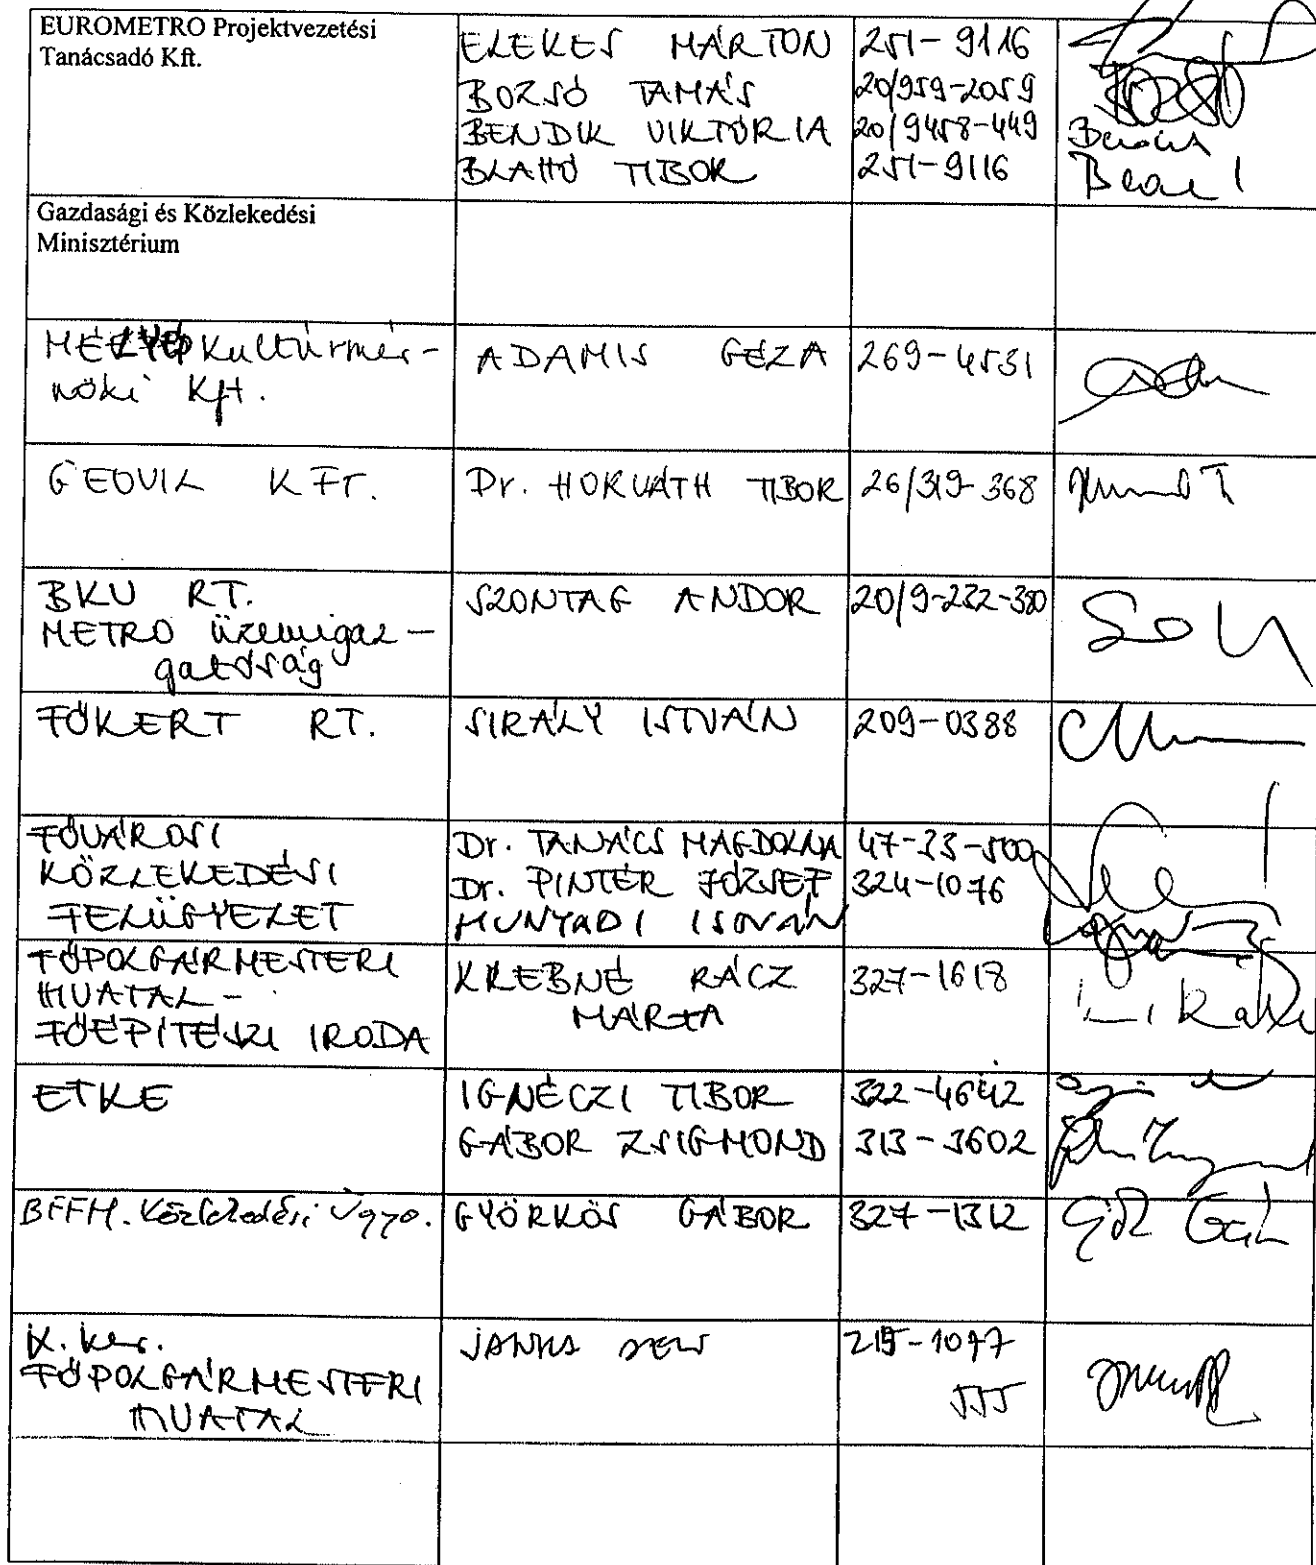 EUROMETRO Projektvezetési
Tanácsadó Kft.
ELEKES MÁRTON 251-9116
BOZSÓ TAMÁS 20/959-2059
BENDIK VIKTÓRIA 20/9458-449
BLAHÓ TIBOR 251-9116
Gazdasági és Közlekedési
Minisztérium
MÉLYÉP Kultúrmér-
nöki Kft.
ADAMIS GÉZA 269-4531
GEOVIL KFT. Dr. HORVÁTH TIBOR 26/319-368
BKV RT.
METRO üzemigaz-
gatóság
SZONTAG ANDOR 20/9-232-380
FŐKERT RT. SIRÁLY ISTVÁN 209-0388
FŐVÁROSI
KÖZLEKEDÉSI
FELÜGYELET
Dr. TANÁCS MAGDOLNA 47-33-500
Dr. PINTÉR JÓZSEF 324-1076
HUNYADI ISTVÁN
FŐPOLGÁRMESTERI
HIVATAL-
FŐÉPÍTÉSZI IRODA
KREBNÉ RÁCZ 327-1618
MÁRTA
ETKE
IGNÉCZI TIBOR 322-4642
GÁBOR ZSIGMOND 313-3602
BFFH. Közlekedési Ügyo. GYÖRKÖS GÁBOR 327-1312
IX. ker.
FŐPOLGÁRMESTERI
HIVATAL
JANKA 215-1077
555